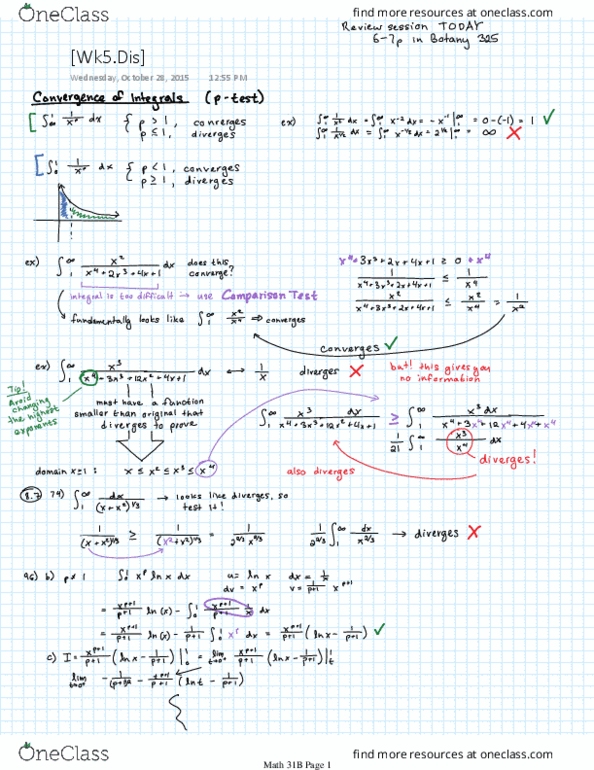 OneClass
find more resources at oneclass.com
Review session TODAY
6-7p in Botany 325
[Wk5.Dis]
Wednesday, October 28, 2015 12:55 PM
Convergence of Integrals (p-test)
∫₁^∞ 1/x^p dx { p > 1, converges
p ≤ 1, diverges
ex) ∫₁^∞ 1/x² dx = ∫₁^∞ x⁻² dx = -x⁻¹|₁^∞ = 0-(-1) = 1 ✓
= ∞ X
∫₀¹ 1/x^p dx { p < 1, converges
p ≥ 1, diverges
ex) ∫₁^∞ x²/(x⁴+2x³+4x+1) dx does this converge?
integral is too difficult → use Comparison Test
fundamentally looks like ∫₁^∞ x²/x⁴ ⇒ converges
x⁴+3x³+2x+4x+1 ≥ 0 + x⁴
1/(x⁴+3x³+2x+4x+1) ≤ 1/x⁴
x²/(x⁴+3x³+2x+4x+1) ≤ x²/x⁴ = 1/x²
converges ✓
ex) ∫₁^∞ x³/(x⁴+3x³+12x²+4x+1) dx ↔ 1/x diverges X
but! this gives you
no information
Tip!
Avoid
changing
the highest
exponents
must have a function
smaller than original that
diverges to prove
∫₁^∞ x³ dx/(x⁴+3x³+12x²+4x+1) ≥ ∫₁^∞ x³ dx/(x⁴+3x⁴+12x⁴+4x⁴+x⁴)
1/21 ∫₁^∞ x³/x⁴ dx
diverges!
also diverges
domain x≥1: x ≤ x² ≤ x³ ≤ x⁴
8.7 74) ∫₁^∞ dx/(x+x²)^1/3 → looks like diverges, so
test it!
1/(x+x²)^1/3 ≥ 1/(x²+x²)^1/3 = 1/(2^1/3 x^2/3)
∫₁^∞ dx/x^2/3 → diverges X
96) b) p≠-1 ∫₀¹ x^p ln x dx u = ln x dx = 1/x
dv = x^p v = 1/(p+1) x^p+1
= x^p+1/(p+1) ln(x) - ∫₀¹ x^p+1/(p+1) 1/x dx
= x^p+1/(p+1) ln(x) - 1/(p+1) ∫₀¹ x^p dx = x^p+1/(p+1) (ln x - 1/(p+1)) ✓
c) I = x^p+1/(p+1) (ln x - 1/(p+1))|₀¹ = lim t→0⁺ x^p+1/(p+1) (ln x - 1/(p+1))|ₜ¹
lim t→0⁺ -1/(p+1)² - t^p+1/(p+1) (ln t - 1/(p+1))
OneClass
find more resources at oneclass.com
Math 31B Page 1